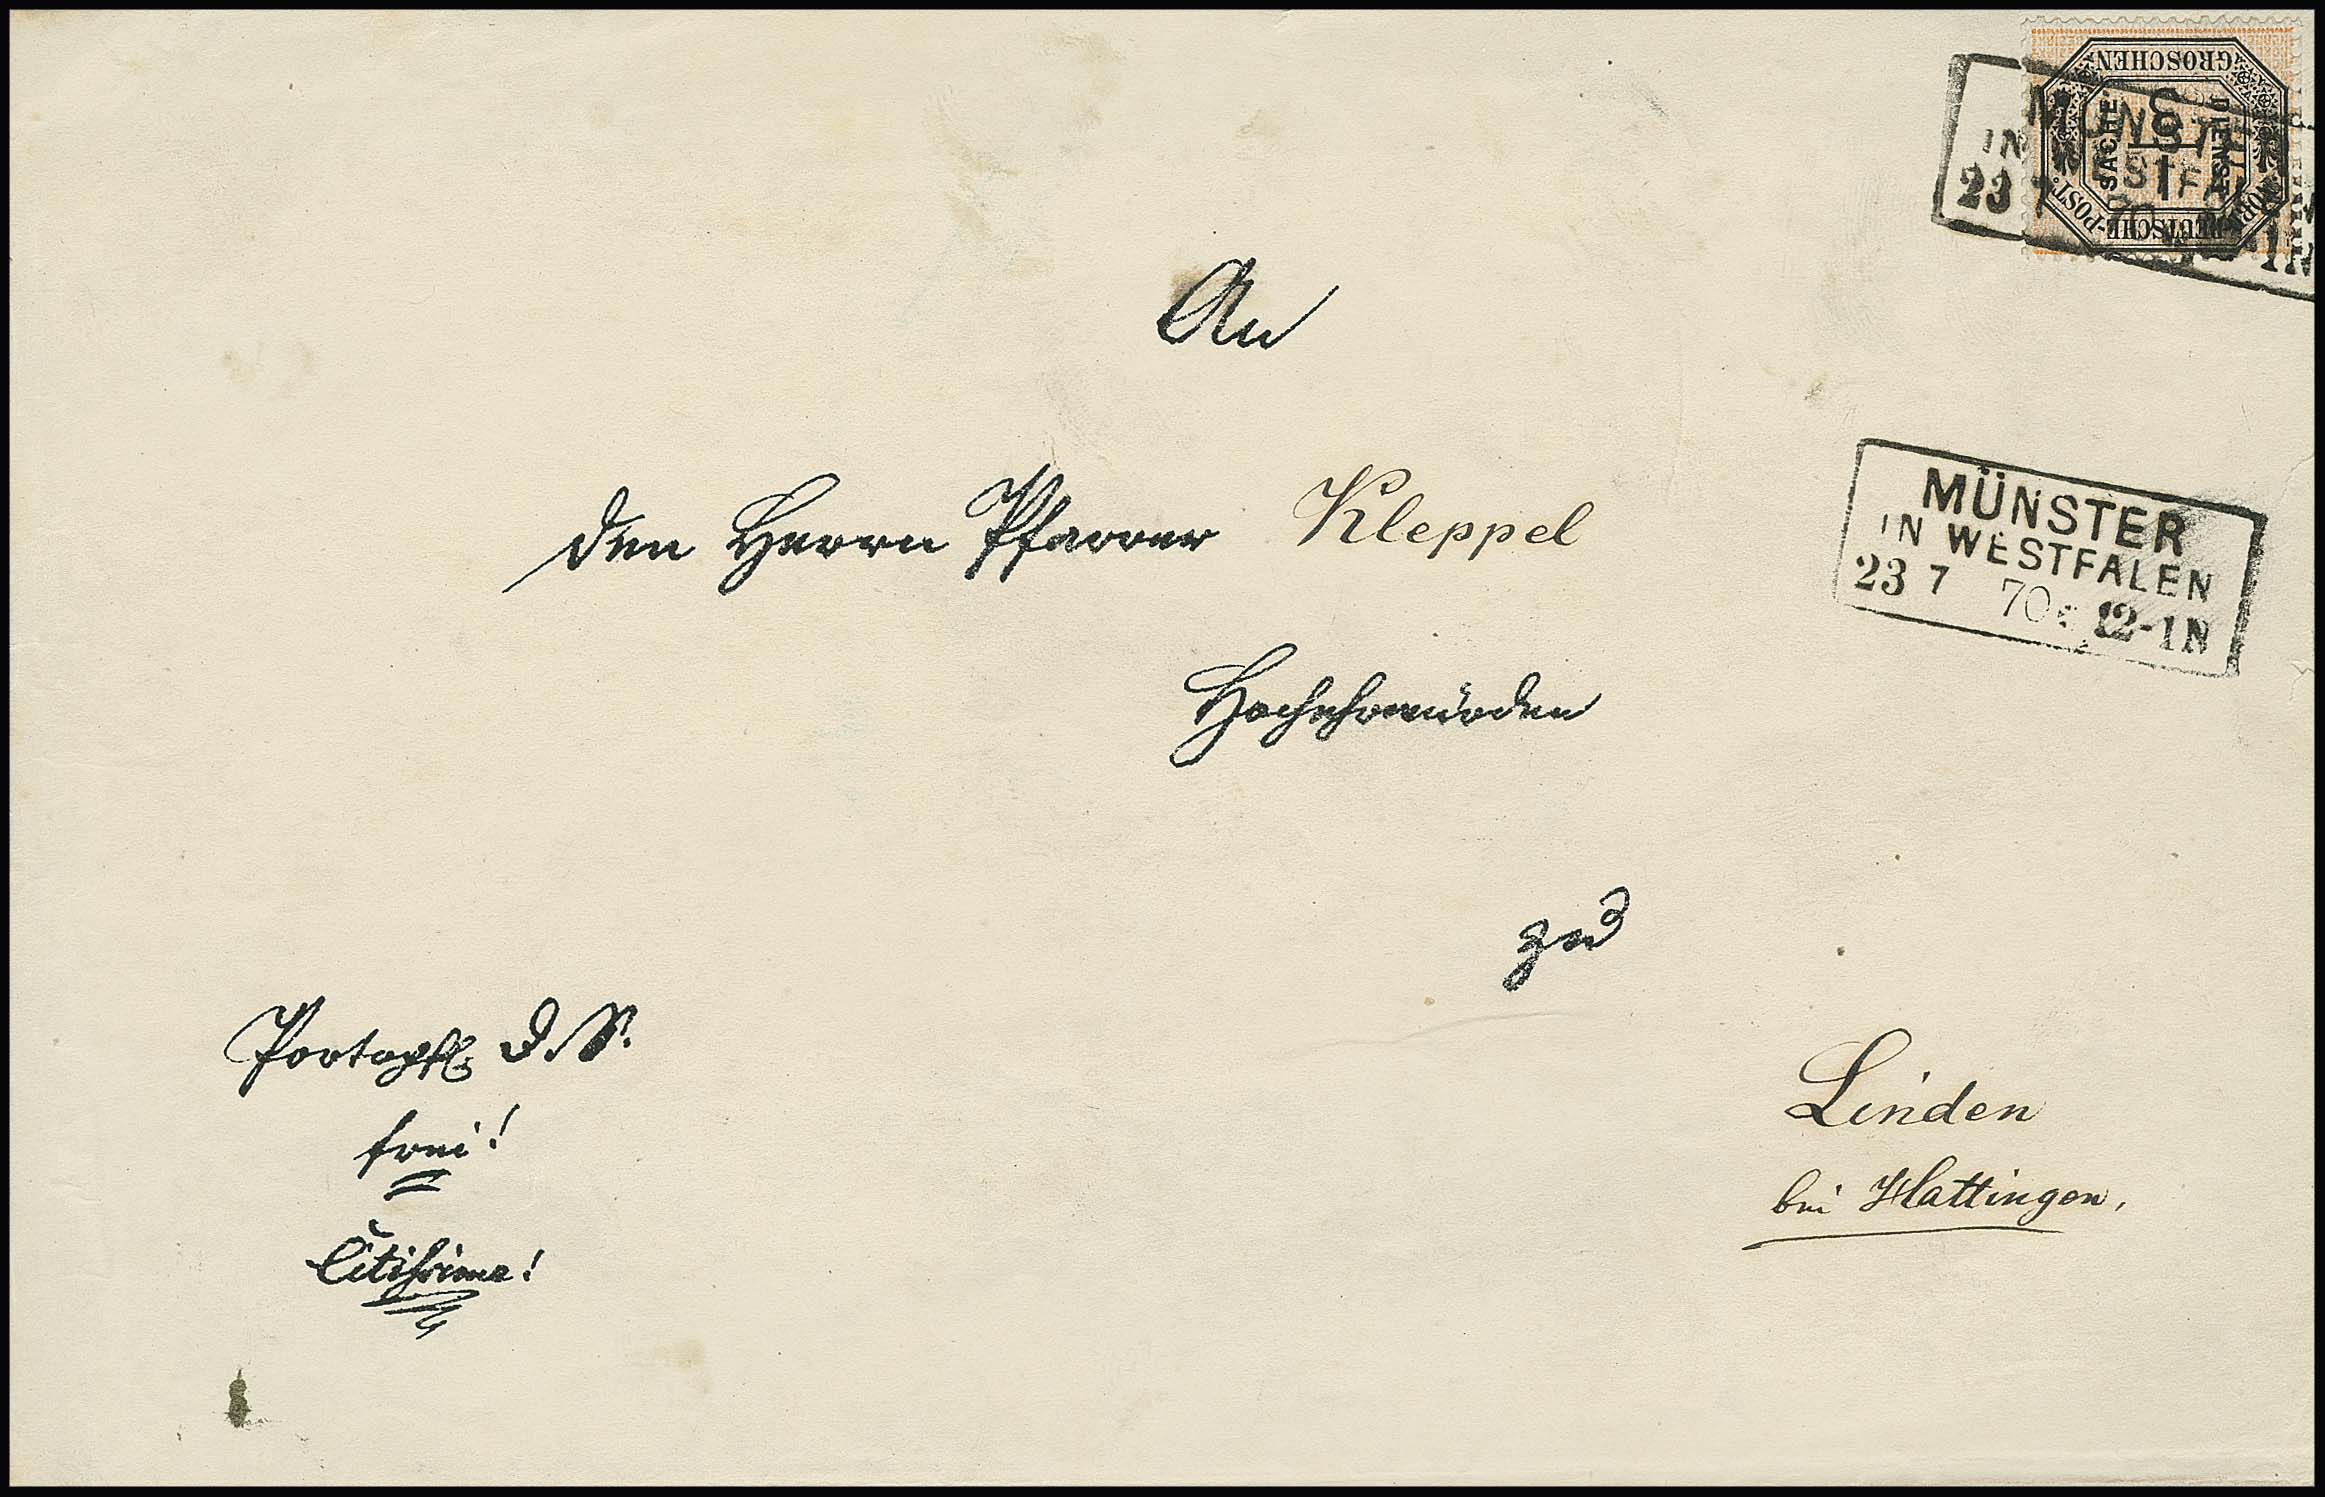 GROSCHEN
DIENST
SACHE
1/3
NORDDEUTSCHE-POST.
MÜNSTER
IN WESTFALEN
23 7 70 12-1N
An
den Herrn Pfarrer Kleppel
MÜNSTER
IN WESTFALEN
23 7 70 12-1N
Hochehrwürden
zu
Portopfl. D. S.
frei!
Citissime!
Linden
bei Hattingen,